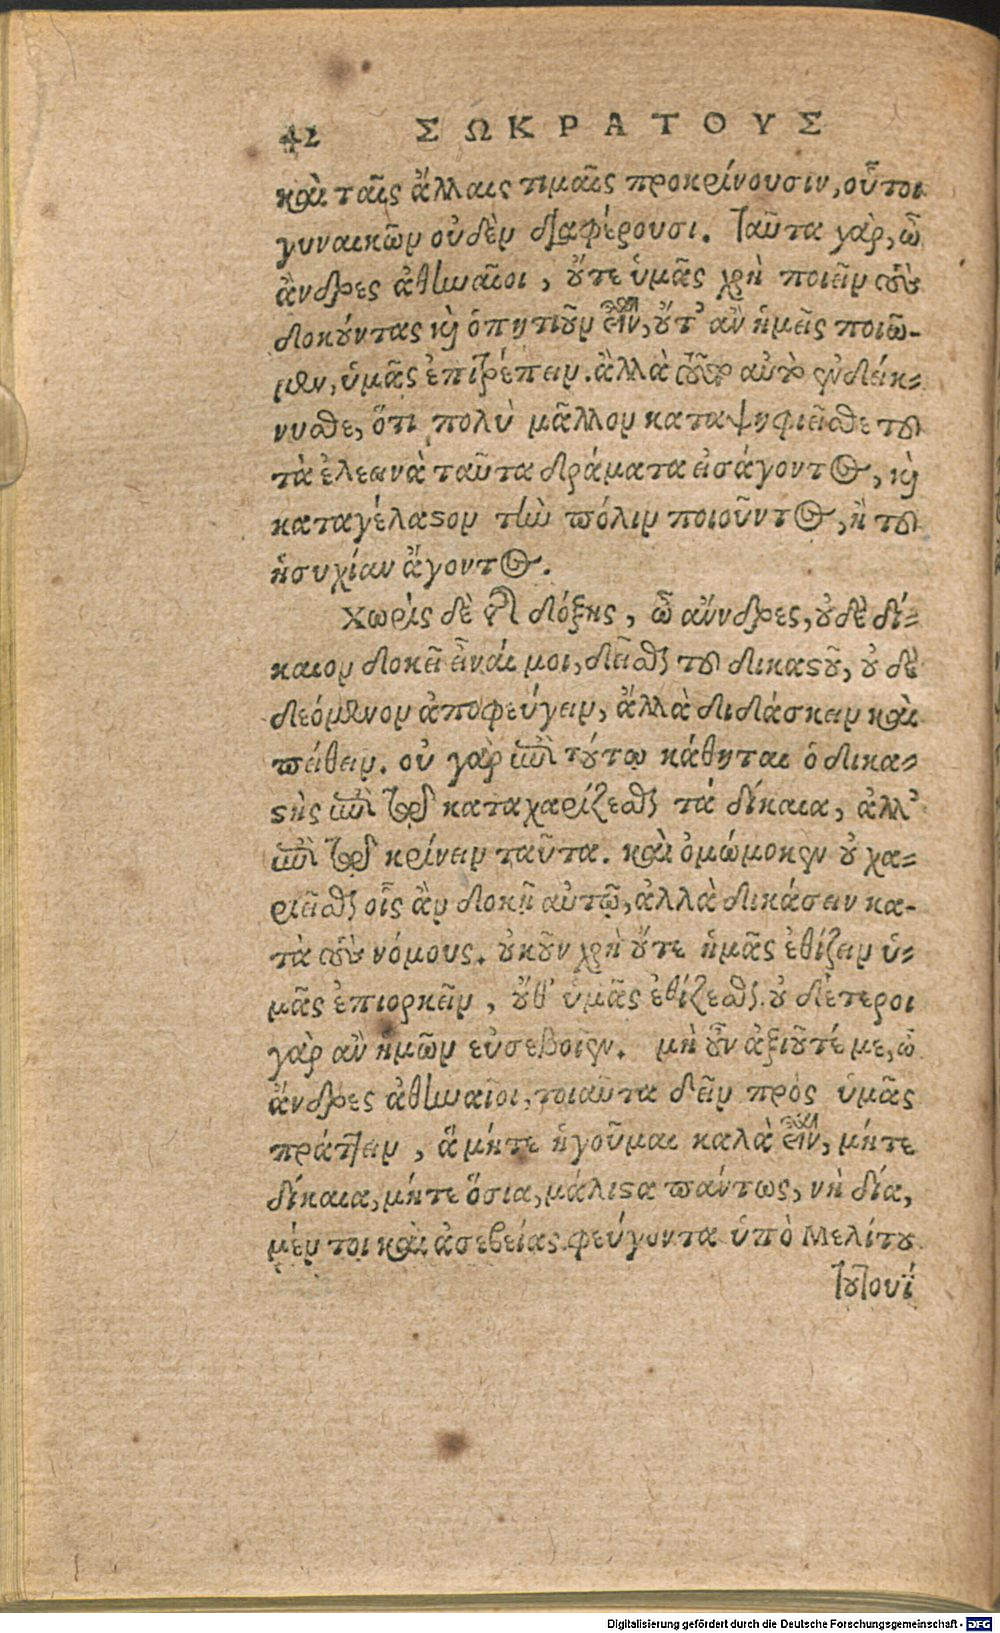 42 ΣΩΚΡΑΤΟΥΣ
καὶ ταῖς ἄλλαις τιμαῖς προκρίνουσιν, οὗτοι
γυναικῶν οὐδὲν διαφέρουσι. Ταῦτα γὰρ, ὦ
ἄνδρες ἀθηναῖοι, οὔτε ὑμᾶς χρὴ ποιεῖν τοὺς
δοκοῦντας καὶ ὁπητιοῦν εἶναι, οὔτ' ἂν ἡμεῖς ποιῶ-
μεν, ὑμᾶς ἐπιτρέπειν. ἀλλὰ τοῦτο αὐτὸ ἐνδείκ-
νυσθε, ὅτι πολὺ μᾶλλον καταψηφιεῖσθε τοῦ
τὰ ἐλεεινὰ ταῦτα δράματα εἰσάγοντος, καὶ
καταγέλαστον τὴν πόλιν ποιοῦντος, ἢ τοῦ
ἡσυχίαν ἄγοντος.
Χωρὶς δὲ τῆς δόξης, ὦ ἄνδρες, οὐδὲ δί-
καιον δοκεῖ εἶναί μοι, δεῖσθαι τοῦ δικαστοῦ, οὐ δὲ
δεόμενον ἀποφεύγειν, ἀλλὰ διδάσκειν καὶ
πείθειν. οὐ γὰρ ἐπὶ τούτῳ κάθηται ὁ δικα-
στὴς ἐπὶ τῷ καταχαρίζεσθαι τὰ δίκαια, ἀλλ'
ἐπὶ τῷ κρίνειν ταῦτα. καὶ ὀμώμοκεν οὐ χα-
ριεῖσθαι οἷς ἂν δοκῇ αὐτῷ, ἀλλὰ δικάσειν κα-
τὰ τοὺς νόμους. οὐκοῦν χρὴ οὔτε ἡμᾶς ἐθίζειν ὑ-
μᾶς ἐπιορκεῖν, οὔθ' ὑμᾶς ἐθίζεσθαι. οὐδέτεροι
γὰρ ἂν ἡμῶν εὐσεβοῖεν. μὴ οὖν ἀξιοῦτέ με, ὦ
ἄνδρες ἀθηναῖοι, τοιαῦτα δεῖν πρὸς ὑμᾶς
πράττειν, ἃ μήτε ἡγοῦμαι καλὰ εἶναι, μήτε
δίκαια, μήτε ὅσια, μάλιστα πάντως, νὴ δία,
μέν τοι καὶ ἀσεβείας φεύγοντα ὑπὸ Μελίτου
τουτουΐ
Digitalisierung gefördert durch die Deutsche Forschungsgemeinschaft - DFG